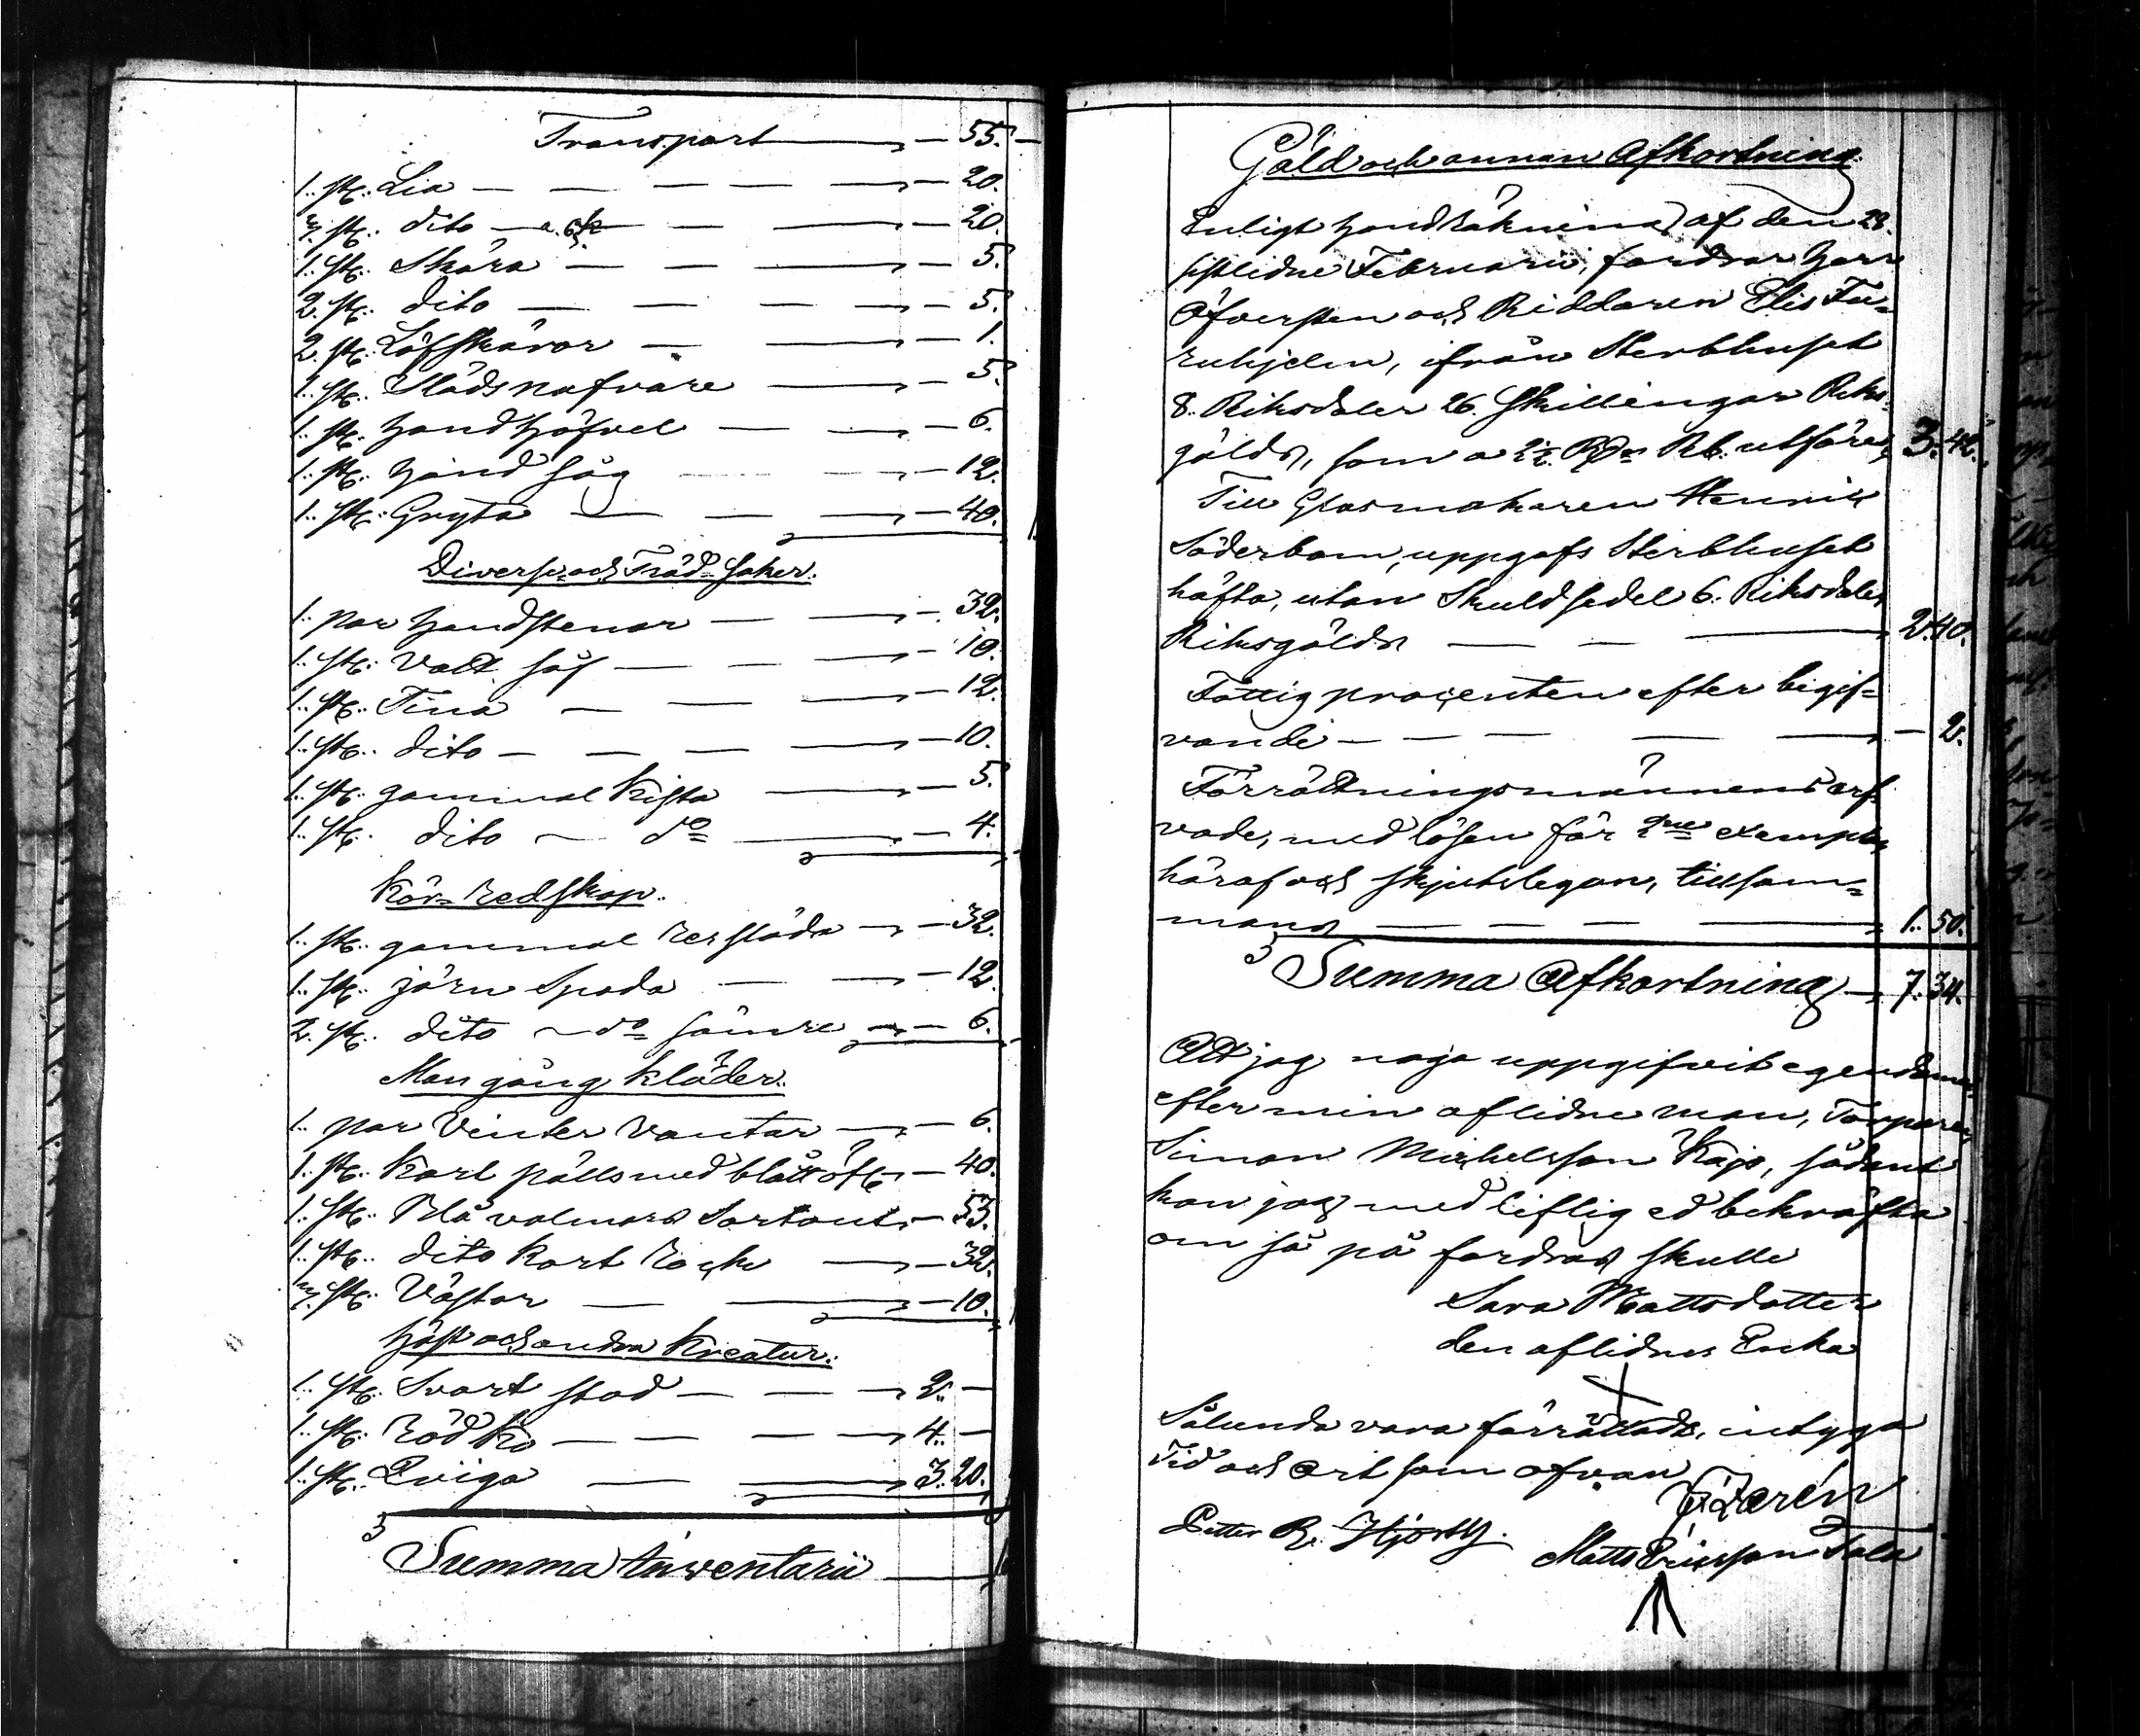 Transport — 55. —
1. st: Lia — — — — — 20.
3. st: dito — a. 6 sk — — — 20.
1. st: Skära — — — — 5.
2. st: dito — — — — — 5.
2. st: Löfskäror — — — 1.
1. st: Slädsnafvare — — 5.
1. st: Handhöfvel — — — 6.
1. st: Hand såg — — — 12.
1. st: Gryta — — — — 40.
Diverse och Träd-saker.
1. par Handstenar — — — 32.
1. st: Vatt så — — — — 10.
1. st: Tina — — — — 12.
1. st: dito — — — — — 10.
1. st: gammal Kista — — 5.
1. st: dito — do — — 4.
Kör-redskap.
1. st: gammal ressläda — — 32.
1. st: järn Spada — — — 12.
2. st: dito — do sämre — — 6.
Man gång kläder.
1. par Vinter Vantar — — 6.
1. st: Karl pälls med blått öfty — 40.
1. st: Blå valmars Sortout — 53.
1. st: dito kort Rock — — 32.
3. st: Västar — — — 10.
Häst och andra Kreatur.
1. st: Svart stod — — — 2. —
1. st: Röd Ko — — — — 4. —
1. st: Qviga — — — 3. 20.
Summa Inventarii —
Gäld och annan Afkortning.
Enligt handräkning af den 28.
sistlidne Februarii, fordrar Herr
Öfversten och Riddaren Elis Fu-
ruhjelm, ifrån Sterbhuset
8. Riksdaler 26. Skillingar Riks-
gälds, som a 2½ Rdr Rb. utföres 3. 42.
Till Glasmakaren Henric
Söderbom, uppgafs Sterbhuset
häfta, utan Skuldsedel 6. Riksdaler
Riksgälds — — — 2. 40.
Fattig procenten efter begif-
vande — — — — — — 2.
Förrättningsmännens arf-
vode, med lösen för 2ne exemplar
häraf och skjutslegan, tillsam-
mans — — — — 1. 50.
Summa Afkortning — 7. 34.
Att jag noga uppgifvit egendomen
efter min aflidne man, Torparen
Simon Michelsson Kajo, sådant
kan jag med liflig ed bekräfta
om så på fordras skulle
Sara Mattsdotter
den aflidnes Enka
Sålunda vara förrättadt, intyga
Tid och ort som ofvan
Petter R. Hjorth.
Matts Ericsson Tala